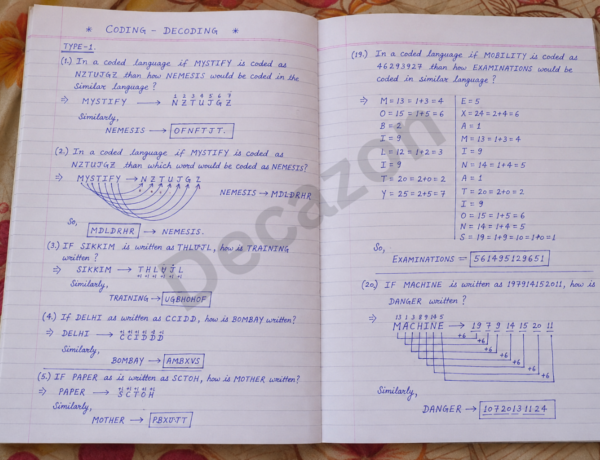 * CODING - DECODING *
TYPE-1.
(1.) In a coded language if MYSTIFY is coded as
NZTUJGZ than how NEMESIS would be coded in the
Similar language ?
1 2 3 4 5 6 7
⇒ MYSTIFY → N Z T U J G Z
Similarly,
NEMESIS → OFNFTJT.
(2.) In a coded language if MYSTIFY is coded as
NZTUJGZ than which word would be coded as NEMESIS?
⇒ MYSTIFY → N Z T U J G Z
NEMESIS → MDLDRHR
So,
MDLDRHR → NEMESIS.
(3.) IF SIKKIM is written as THLUJL, how is TRAINING
written ?
⇒ SIKKIM → T H L U J L
Similarly,
TRAINING → UGBHOHOF
(4.) If DELHI is written as CCIDD, how is BOMBAY written?
⇒ DELHI → C C I D D
Similarly,
BOMBAY → AMBXVS
(5.) IF PAPER as is written as SCTOH, how is MOTHER written?
⇒ PAPER → S C T O H
Similarly,
MOTHER → PBXUJT
(19.) In a coded language if MOBILITY is coded as
46293927 than how EXAMINATIONS would be
coded in similar language ?
⇒ M = 13 = 1+3 = 4
O = 15 = 1+5 = 6
B = 2
I = 9
L = 12 = 1+2 = 3
I = 9
T = 20 = 2+0 = 2
Y = 25 = 2+5 = 7
E = 5
X = 24 = 2+4 = 6
A = 1
M = 13 = 1+3 = 4
I = 9
N = 14 = 1+4 = 5
A = 1
T = 20 = 2+0 = 2
I = 9
O = 15 = 1+5 = 6
N = 14 = 1+4 = 5
S = 19 = 1+9 = 10 = 1+0 = 1
So,
EXAMINATIONS = 561495129651
(20.) IF MACHINE is written as 197914152011, how is
DANGER written ?
13 1 3 8 9 14 5
⇒ MACHINE → 19 7 9 14 15 20 11
+6 +6
+6
+6 +6
+6
Similarly,
DANGER → 10720131124
Decazon